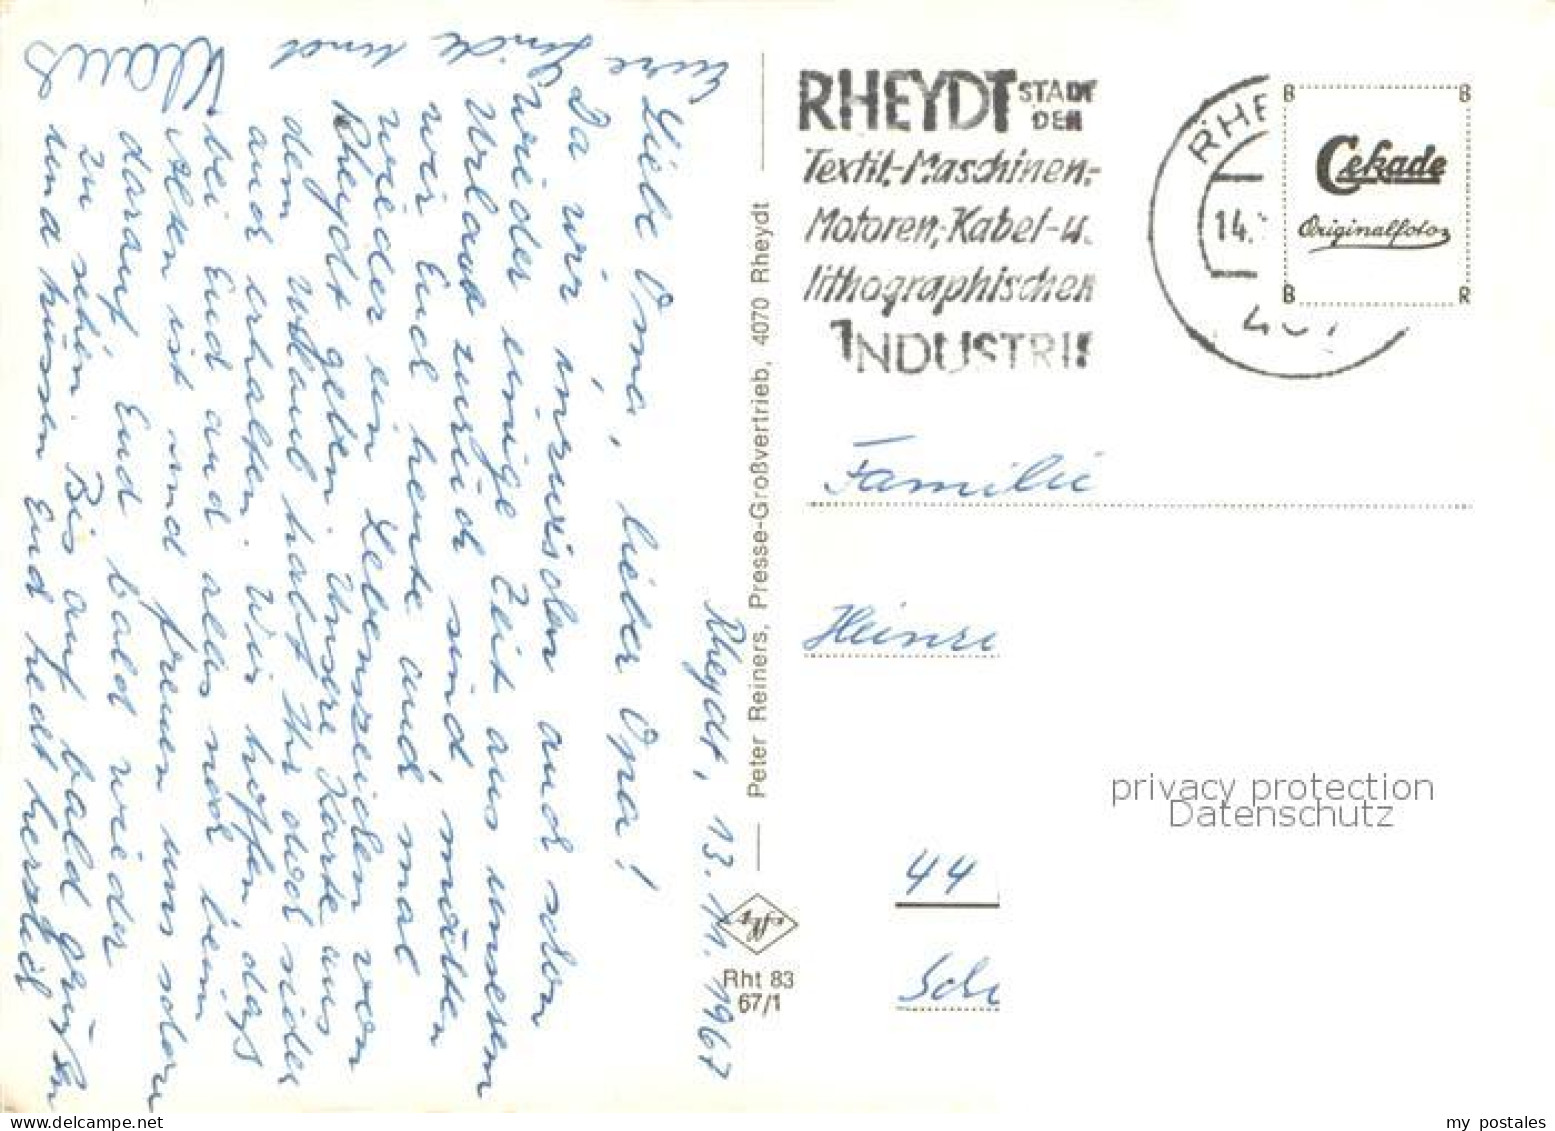 Rheydt, 13.11.1967
Liebe Oma, lieber Opa!
Da wir inzwischen auch schon
wieder einige Zeit aus unserem
Urlaub zurück sind, möchten
wir Euch heute auch mal
wieder ein Lebenszeichen von
Rheydt geben. Unsere Karte aus
dem Urlaub habt Ihr doch sicher
auch erhalten. Wir hoffen, dass
bei Euch auch alles noch beim
Alten ist und freuen uns schon
darauf, Euch bald wieder
zu sehen. Bis auf bald grüßen
und küssen Euch recht herzlich
Eure und
Klaus
Peter Reiners, Presse-Großvertrieb, 4070 Rheydt
Agfa
Rht 83
67/1
RHEYDT STADT
DER
Textil-, Maschinen-,
Motoren-, Kabel- u.
lithographischen
INDUSTRIE
RHE
14.
B B
Cekade
Originalfoto
B R
Familie
Heinri
44
Sch
privacy protection
Datenschutz
my postales